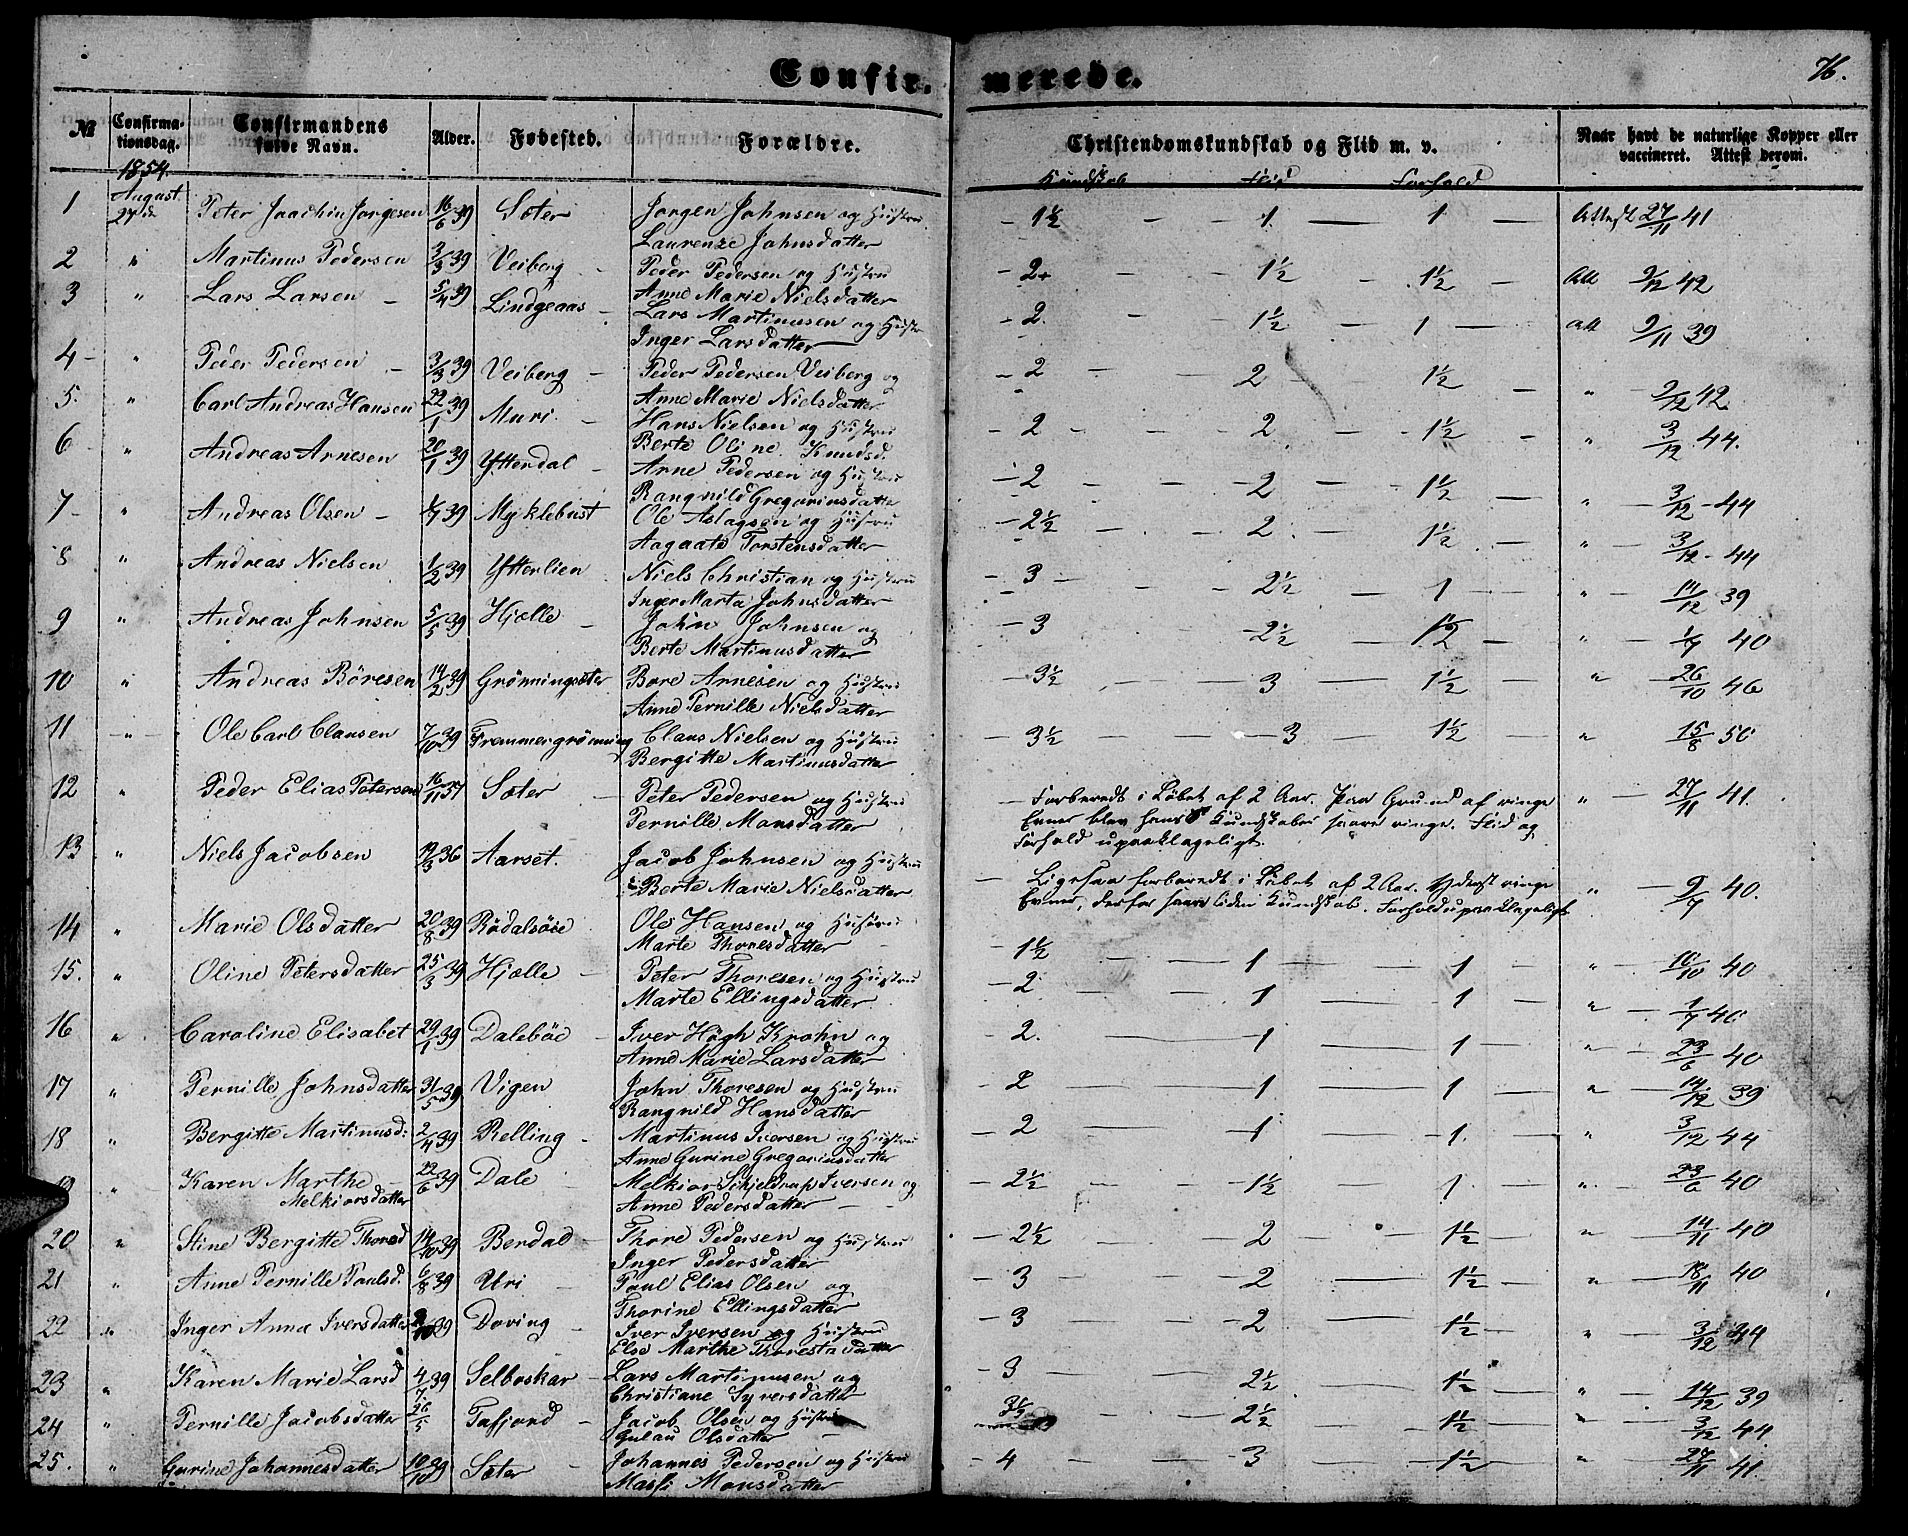 Confir. merede. 76.
№ Confirmationsdag. Confirmandens fulde Navn. Alder. Fødested. Forældre. Christendomskundskab og Flid m. v. Naar havt de naturlige Kopper eller vaccineret. Attest derom.
1854. Kundskab Flid Forhold
1 August 27de Peter Joachim Jørgesen 16/6 39 Sæter Jørgen Johnsen og Hustru Laurenze Johnsdatter 1½ 1 1 Attest 27/11 41
2 " Martinus Pedersen 3/3 39 Veiberg Peder Pedersen og Hustru Anne Marie Nielsdatter 2+ 1½ 1½ Att 9/12 42
3 " Lars Larsen 5/4 39 Lindgeaas Lars Martinusen og Hustr Inger Larsdatter 2. 1½ 1 Att 9/11 39
4 " Peder Pedersen 3/3 39 Veiberg Peder Pedersen Veiberg og Anne Marie Nielsdatter 2 2 1½ " 9/12 42
5. " Carl Andreas Hansen 22/1 39 Muri Hans Nielsen og Hustru Berte Oline Knudsd. 2 2 1½ " 3/12 44.
6 " Andreas Arnesen 20/1 39 Ytterdal Arne Pedersen og Hustru Rangnild Gregoriusdatte 2 2 1½ " 3/12 44
7 " Andreas Olsen 39 Myklebust Ole Aslagsen og Hustru Aagaate Torstensdatter 2½ 2. 1½ " 3/12 44
8 " Andreas Nielsen 1/2 39 Ytterlien Niels Christian og Hustru Inger Marta Johnsdatter 3 2½ 1 " 14/12 39
9 " Andreas Johnsen 5/5 39 Hjælle John Johnsen og Berte Martinusdatter 3 2½ 1½ " 1/7 40
10 " Andreas Böresen 14/2 39 Grönningsæter Bore Arnesen og Hustru Anne Pernille Nielsdatter 3½ 3 1½ " 26/10 46
11 " Ole Carl Clausen 7/10 39 Fremmergrönning Claus Nielsen og Hustru Bergitte Martinusdatter 3½ 3 1½ " 15/8 50
12 " Peder Elias Petersen 16/11 37 Sæter Peter Pedersen og Hustru Pernille Monsdatter Forberedt i Løbet af 2 Aar. Paa Grund af ringe Evner blev hans Kundskaber saare ringe. Flid og Forhold upaaklageligt. " 27/11 41.
13 " Niels Jacobsen 19/3 36 Aarset. Jacob Johnsen og Hustru Berte Marie Nielsdatter Ligesaa forberedt i Løbet af 2 Aar. Yderst ringe Evner, derfor saare liden Kundskab. Forhold upaaklageligt " 9/7 40.
14 " Marie Olsdatter 20/8 39 Rödalsöie Ole Hansen og Hustru Marte Thoresdatter 1½ 1 1 " 10/10 40
15. " Oline Petersdatter 25/3 39 Hjælle Peter Thoresen og Hustru Marte Ellingsdatter 2 1 1 " 1/7 40
16 " Caroline Elisabet 29/1 39 Daleböe Iver Högh Krohn og Anne Marie Larsdatter 2. 1 1 " 23/6 40
17 " Pernille Johnsdatter 31/5 39 Vigen John Thoresen og Hustru Rangnild Hansdatter 2 1 1 " 14/12 39
18 " Bergitte Martinusd: 2/4 39 Relling Martinus Iversen og Hustru Anne Gurine Gregoriusdatter 2 1 1. " 3/12 44
19 " Karen Marthe Melkiorsdatter 22/6 39 Dale Melkior Schjeldrup Iversen og Anne Pedersdatter 2½ 1½ 1 " 23/6 40
20 " Stine Bergitte Thoresd 14/10 39 Berdal Thore Pedersen og Hustru Inger Pedersdatter 2½ 2 1½ " 14/11 40
21 " Anne Pernille Paulsd. 6/8 39 Uri Paul Elias Olsen og Thorine Ellingsdatter 3 2 1½ " 18/11 40
22 " Inger Anna Iversdatter 39 Doving Iver Iversen og Hustru Else Marthe 3 2 1½ " 3/12 44
23 " Karen Marie Larsd 4/7 39 Selboskar Lars Martinusen og Christiane Syversdatter 3 2½ 1½ " 14/12 39
24 " Pernille Jacobsdatter 26/5 Tafjord Jacob Olsen og Hustru Gulau Olsdatter 3½ 2½ 1½ " 3/12 44.
25. " Gurine Johannesdatter 10/10 39 Sæter Johannes Pedersen og Hustru Massi Monsdatter 4 3 1½ " 27/11 41.